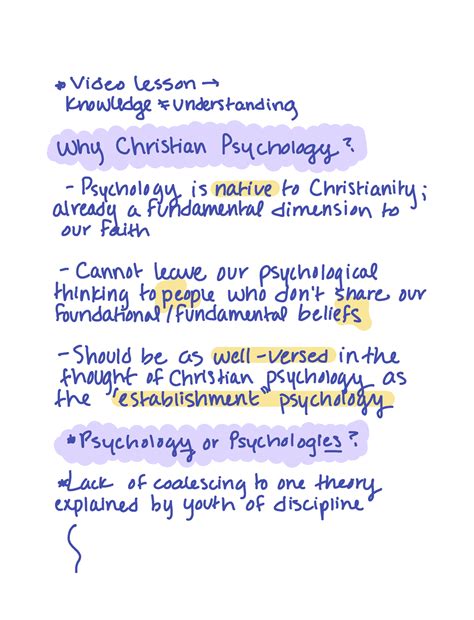 * Video Lesson →
Knowledge ≠ understanding
Why Christian Psychology?
- Psychology is native to Christianity;
already a fundamental dimension to
our faith
- Cannot leave our psychological
thinking to people who don't share our
foundational/fundamental beliefs
- Should be as well-versed in the
thought of Christian psychology as
the "establishment" psychology
*Psychology or Psychologies?
*Lack of coalescing to one theory
explained by youth of discipline